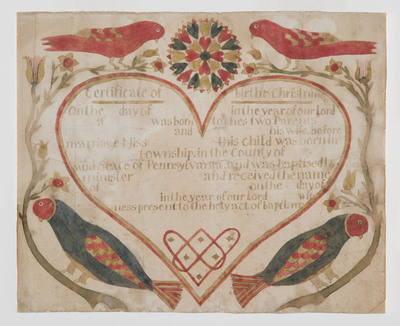 Certificate of Birth & Christning
On the day of in the year of our Lord
a was born to these two Parents
and his wife before
near the this child was born in
township, in the County of
and State of Pennsylvania, and was baptised by
minister and received the name
of on the day of
in the year of our Lord wit
ness present to the holy act of baptism